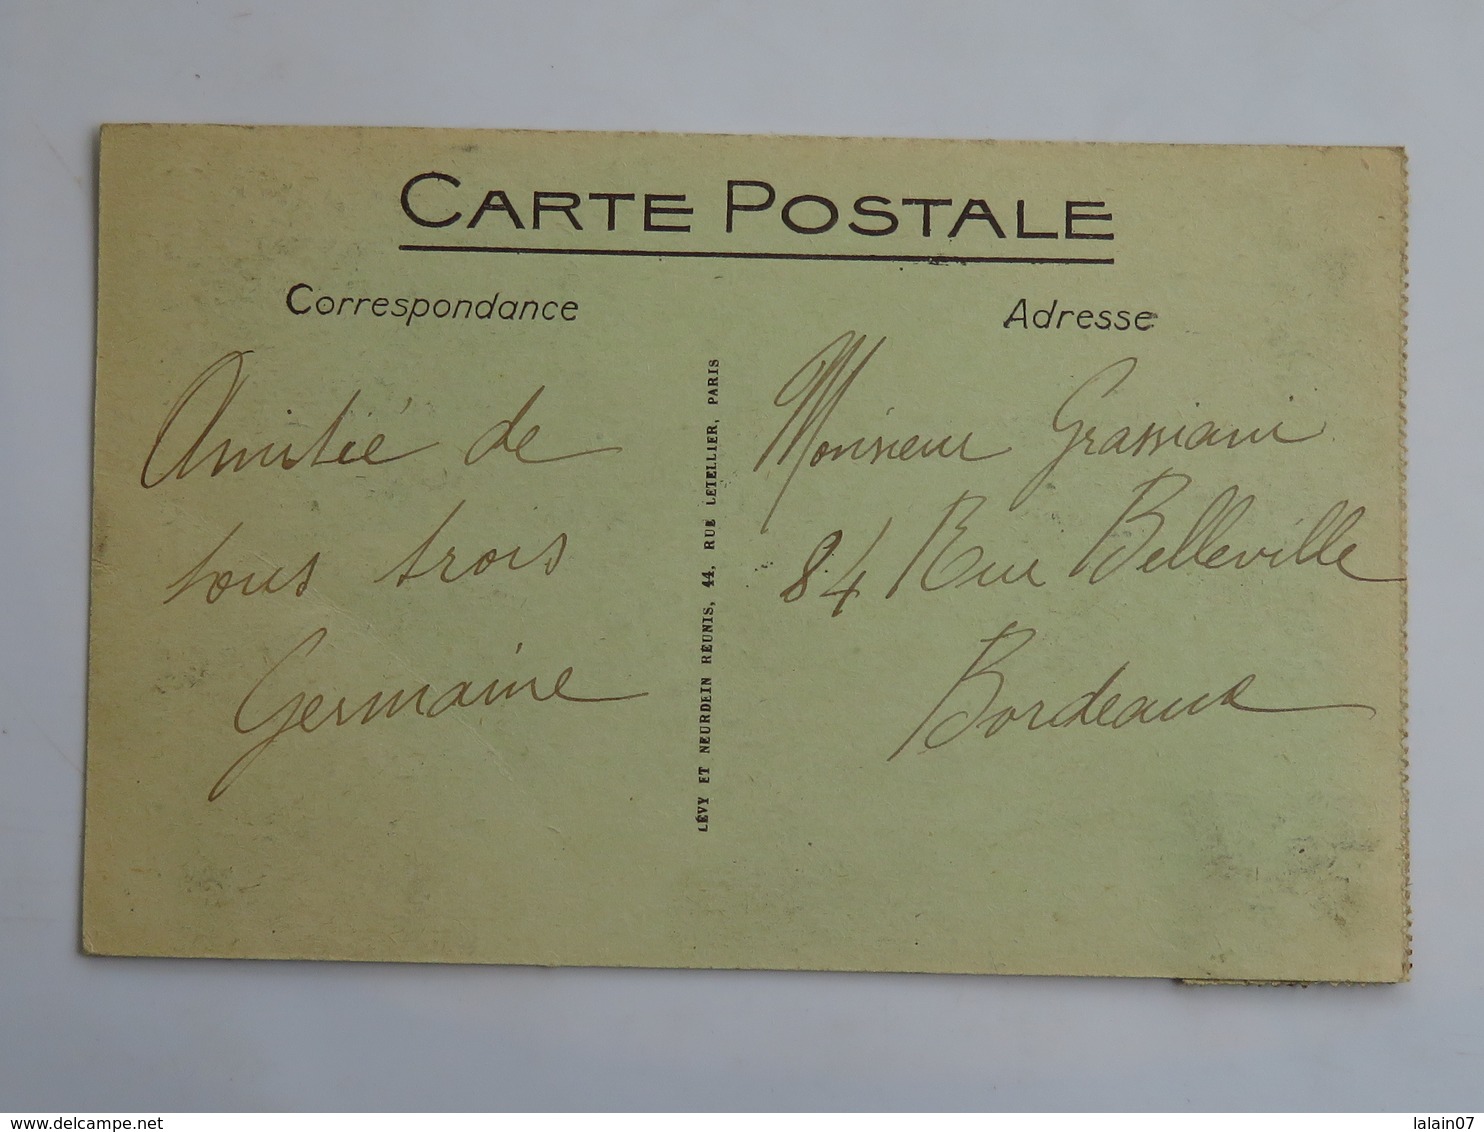 CARTE POSTALE
Correspondance
Adresse
Amitié de
tous trois
Germaine
LÉVY ET NEURDEIN RÉUNIS, 44, RUE LETELLIER, PARIS
Monsieur Grassiani
84 Rue Belleville
Bordeaux
delcampe.net
lalain07